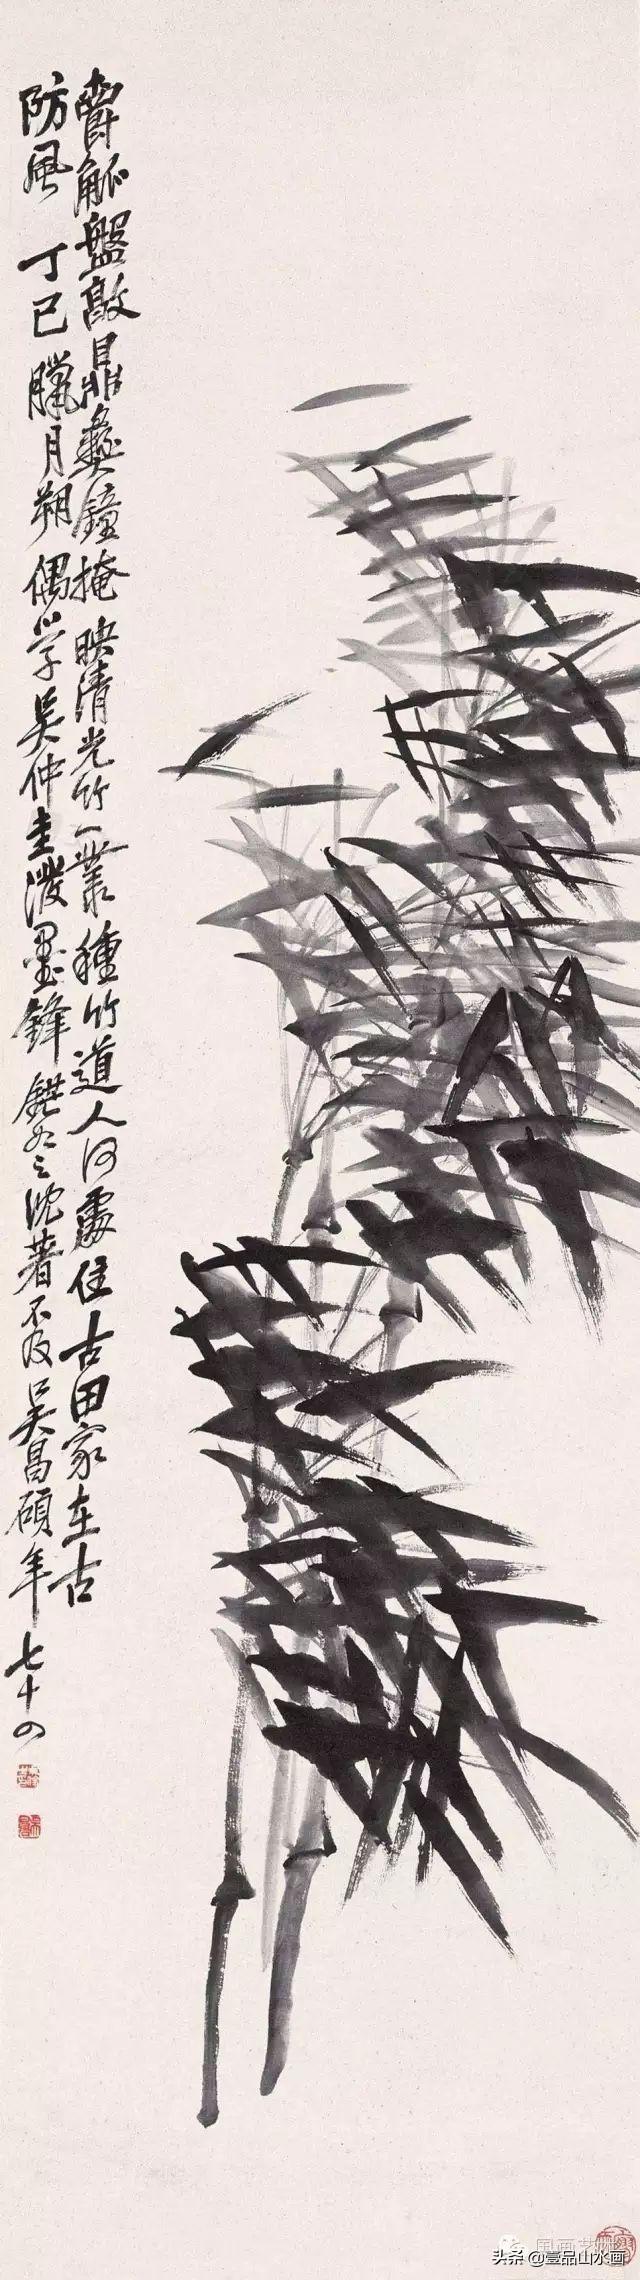 爵觚盤敦鼎彝鐘掩映清光竹一叢種竹道人何處住古田家在古
防風丁巳臘月朔偶學吴仲圭潑墨鋒錯處沈著不及吴昌碩年七十四
国画艺术
头条@壹品山水画